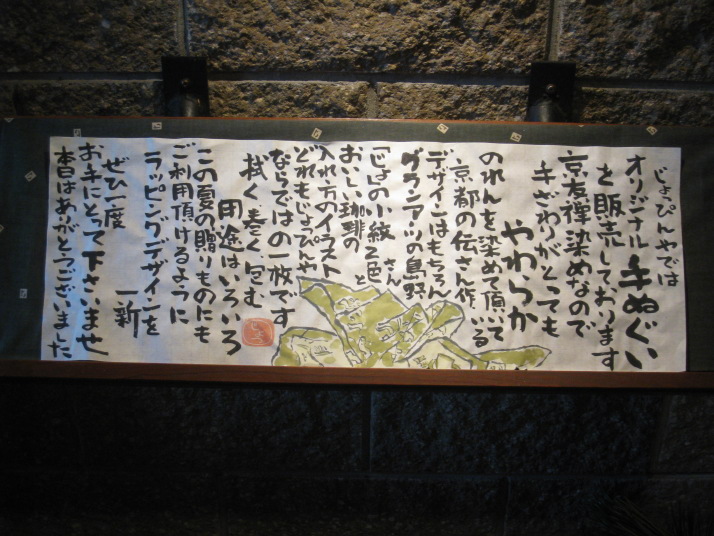 じょっぴんやでは
オリジナル手ぬぐい
を販売しております
京友禅染めなので
手ざわりがとっても
やわらか
のれんを染めて頂いている
京都の伝さん作
デザインはもちろん
グランアツの島野さん
「じょ」の小紋2色と
おいしい珈琲の
入れ方のイラスト
どれもじょっぴんや
ならではの一枚です
拭く巻く包む
用途はいろいろ
この夏の贈りものにも
ご利用頂けるように
ラッピングデザインを
一新
ぜひ一度
お手にとって下さいませ
本日はありがとうございました